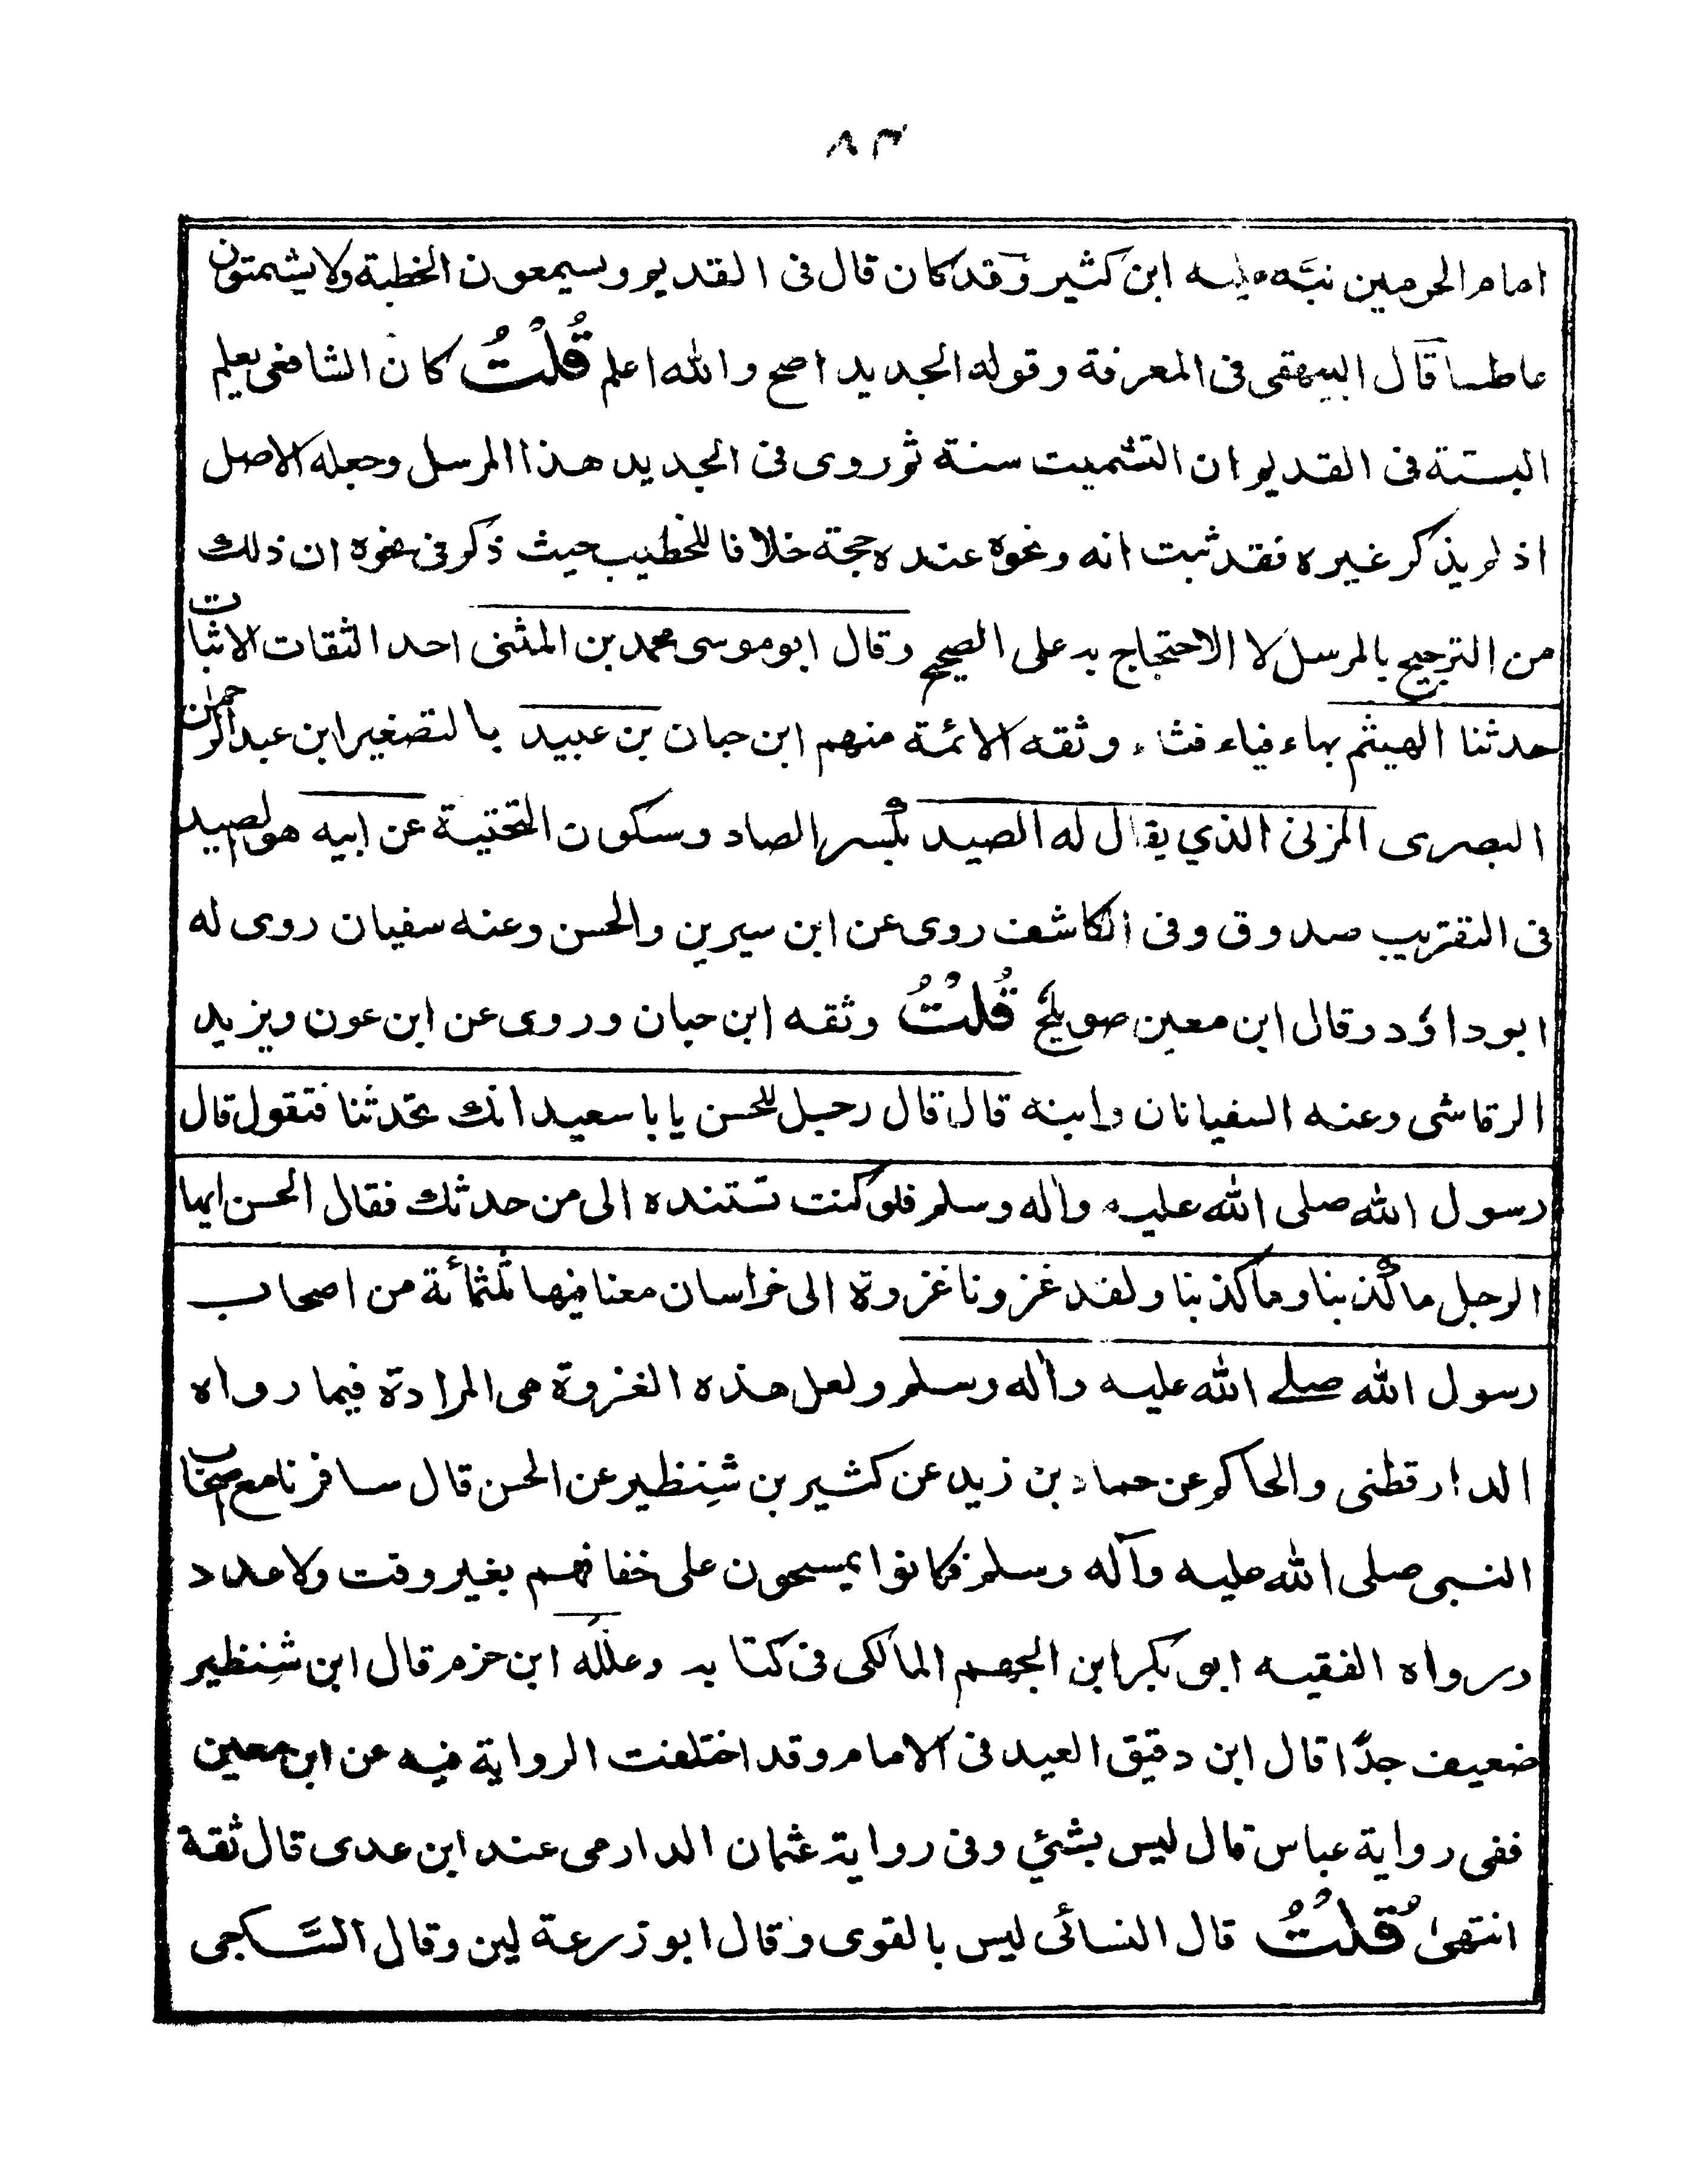 ٨٣
امام الحرمين نبّه عليه ابن كثير وقد كان قال فى القديم ويسمعون الخطبة ولا يشمتون
عاطسا قال البيهقى فى المعرفة وقوله الجديد اصح والله اعلم قُلْتُ كان الشافعى يعلم
البتة فى القديم ان التشميت سنة ثم روى فى الجديد هذا المرسل وجعله الاصل
اذ لم يذكر غيره فقد ثبت انه ونحوه عنده حجة خلافا للخطيب حيث ذكر فى نحوه ان ذلك
من الترجيح بالمرسل لا الاحتجاج به على الصحيح وقال ابو موسى محمد بن المثنى احد الثقات الاثبات
حدثنا الهيثم بهاء فياء فثاء وثقه الائمة منهم ابن حبان بن عبيد بالتصغير ابن عبد الرحمٰن
البصرى المزنى الذي يقال له الصيد بكسر الصاد وسكون التحتية عن ابيه هو الصيد
فى التقريب صدوق وفى الكاشف روى عن ابن سيرين والحسن وعنه سفيان روى له
ابو داؤد وقال ابن معين صويلح قُلْتُ وثقه ابن حبان وروى عن ابن عون ويزيد
الرقاشى وعنه السفيانان وابنه قال قال رجل للحسن يابا سعيد انك تحدثنا فتقول قال
رسول الله صلى الله عليه واٰله وسلم فلو كنت تسنده الى من حدثك فقال الحسن ايها
الرجل ما كَذبنا وما كُذبنا ولقد غزونا غزوة الى خراسان معنا فيها ثلٰثمائة من اصحاب
رسول الله صلے الله عليه واٰله وسلم ولعل هذه الغزوة هى المرادة فيما رواه
الدارقطنى والحاكم عن حماد بن زيد عن كثير بن شِنظير عن الحسن قال سافرنا مع اصحاب
النبى صلى الله عليه وآله وسلم فكانوا يمسحون على خفافهم بغير وقت ولا عدد
ورواه الفقيه ابو بكر ابن الجهم المالكى فى كتابه وعلّله ابن حزم قال ابن شِنظير
ضعيف جدًا قال ابن دقيق العيد فى الامام وقد اختلفت الرواية فيه عن ابن معين
ففى رواية عباس قال ليس بشئي وفى رواية عثمان الدارمى عند ابن عدى قال ثقة
انتهىٰ قُلْتُ قال النسائى ليس بالقوى وقال ابو زرعة لين وقال السَّاجى